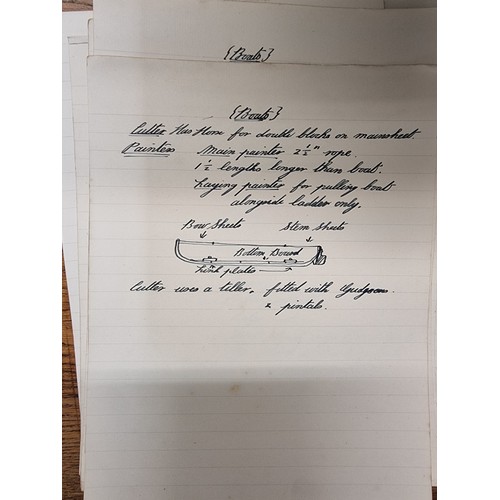 {Boats}
{Boats}
Cutter Has Horse for double blocks on mainsheet.
Painters Main painter 2½" rope.
1½ lengths longer than boat.
Laying painter for pulling boat
alongside ladder only.
Bow Sheets Stern Sheets
Bottom Board
Link plates
Cutter uses a tiller, fitted with Gudgeons
& pintals.